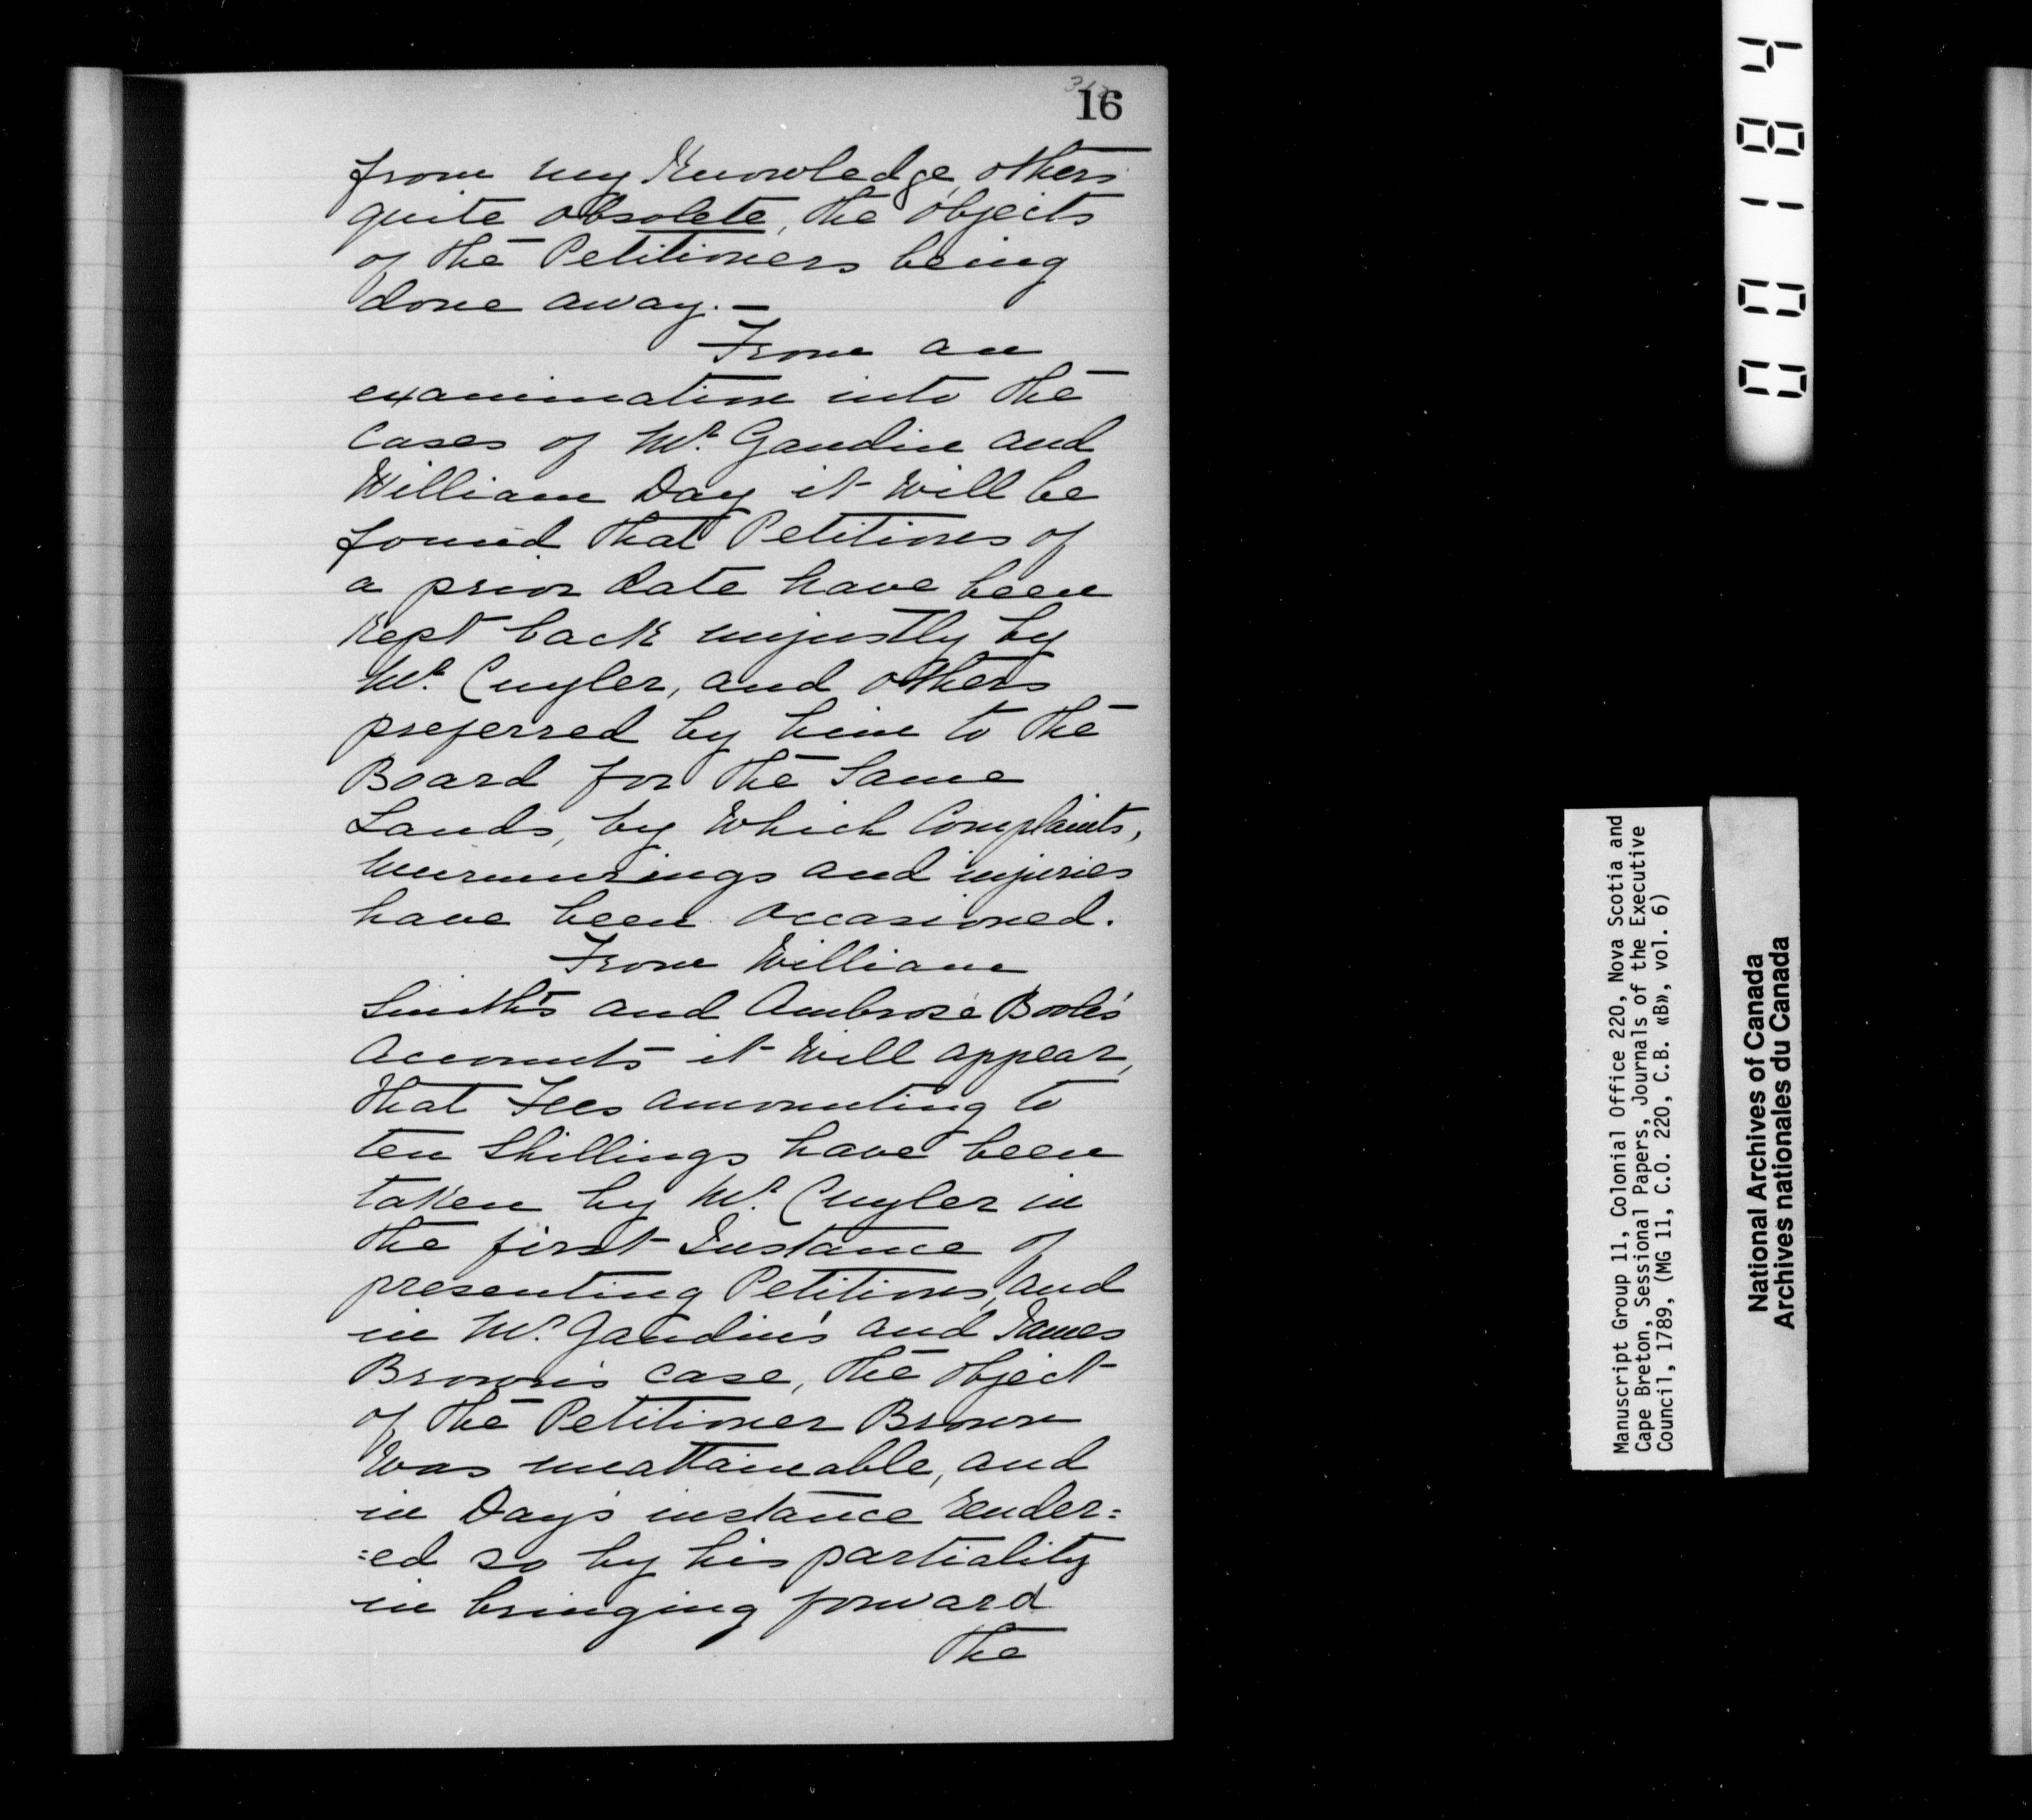 16
from my Knowledge, others
quite obsolete, the objects
of the Petitioners being
done away. —
From an
examination into the
Cases of Mr. Gaudin and
William Day it will be
found that Petitions of
a prior date have been
Kept back unjustly by
Mr. Cuyler, and others
preferred by him to the
Board for the Same
Lands, by which Complaints,
Murmurings and injuries
have been occasioned.
From William
Smith's and Ambrose Booles
Accounts it will appear,
that Fees amounting to
ten Shillings have been
taken by Mr. Cuyler in
the first Instance of
presenting Petitions, and
in Mr. Gaudin's and James
Brown's case, the object
of the Petitioner Brown
was unattaineable, and
in Day's instance render=
=ed so by his partiality
in bringing forward
the
001184
Manuscript Group 11, Colonial Office 220, Nova Scotia and
Cape Breton, Sessional Papers, Journals of the Executive
Council, 1789, (MG 11, C.O. 220, C.B. «B», vol. 6)
National Archives of Canada
Archives nationales du Canada